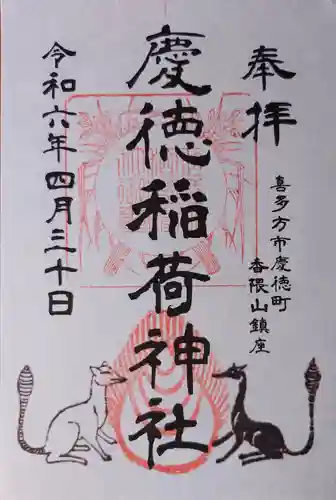 奉拝
喜多方市慶徳町
香隈山鎮座
慶徳稲荷神社
令和六年四月三十日